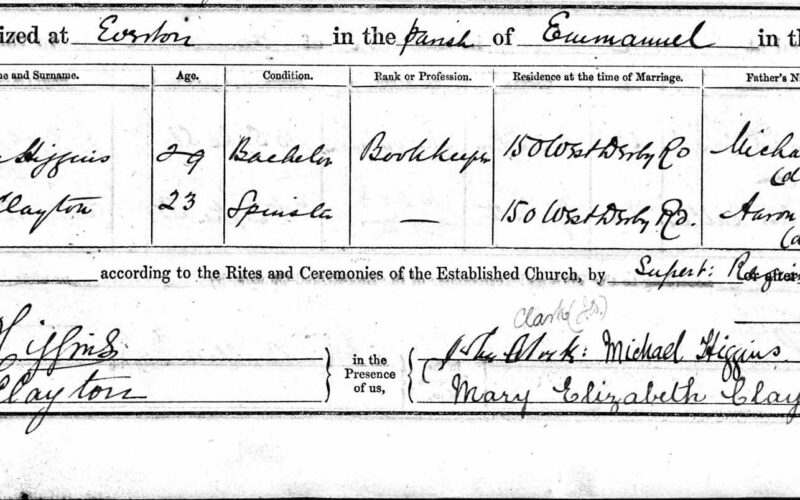 ized at Everton in the Parish of Emmanuel in th
ne and Surname. Age. Condition. Rank or Profession. Residence at the time of Marriage. Father's N
Higgins 29 Bachelor Bookkeeper 150 West Derby Rd Micha
(d
Clayton 23 Spinster — 150 West Derby Rd. Aaron
(d
according to the Rites and Ceremonies of the Established Church, by Supert: or after
Clarke
Higgins in the Michael Higgins
Clayton Presence Mary Elizabeth Clay
of us,